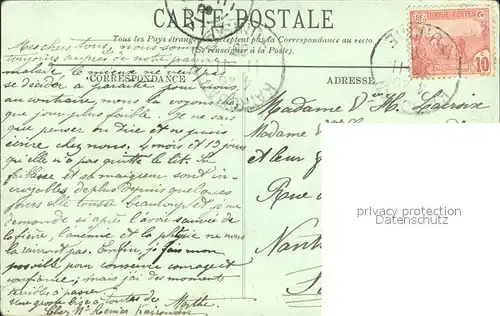 CARTE POSTALE
Tous les Pays étrangers n'acceptent pas la Correspondance au recto
(Se renseigner à la Poste).
TUNISIE POSTES
10
CORRESPONDANCE
ADRESSE
Mes chers tous, nous sommes
toujours auprès de notre pauvre
malade, le mieux ne veut pas
se décider à paraître pour nous
au contraire, nous la voyons
que jour plus faible. Je ne sais
que penser ou dire et ne puis
écrire chez nous. 4 mois et 13 jours
qu'elle n'a pas quitté le lit. Sa
faiblesse et sa maigreur sont in-
croyables de plus depuis quelques
jours elle tousse beaucoup et je
demande si après l'avoir sauvée de
la fièvre, l'anémie et la phtisie ne nous
la raviront pas. Enfin, je fais mon
possible pour conserver courage et
confiance; mais j'ai des moments
pénibles à passer.
Une grosse bise à toutes de Marthe
Chez Mr Kairouan
Madame Vve H. Lacroix
Madame
et leur
Rue
Nant
privacy protection
www.delcampe.net